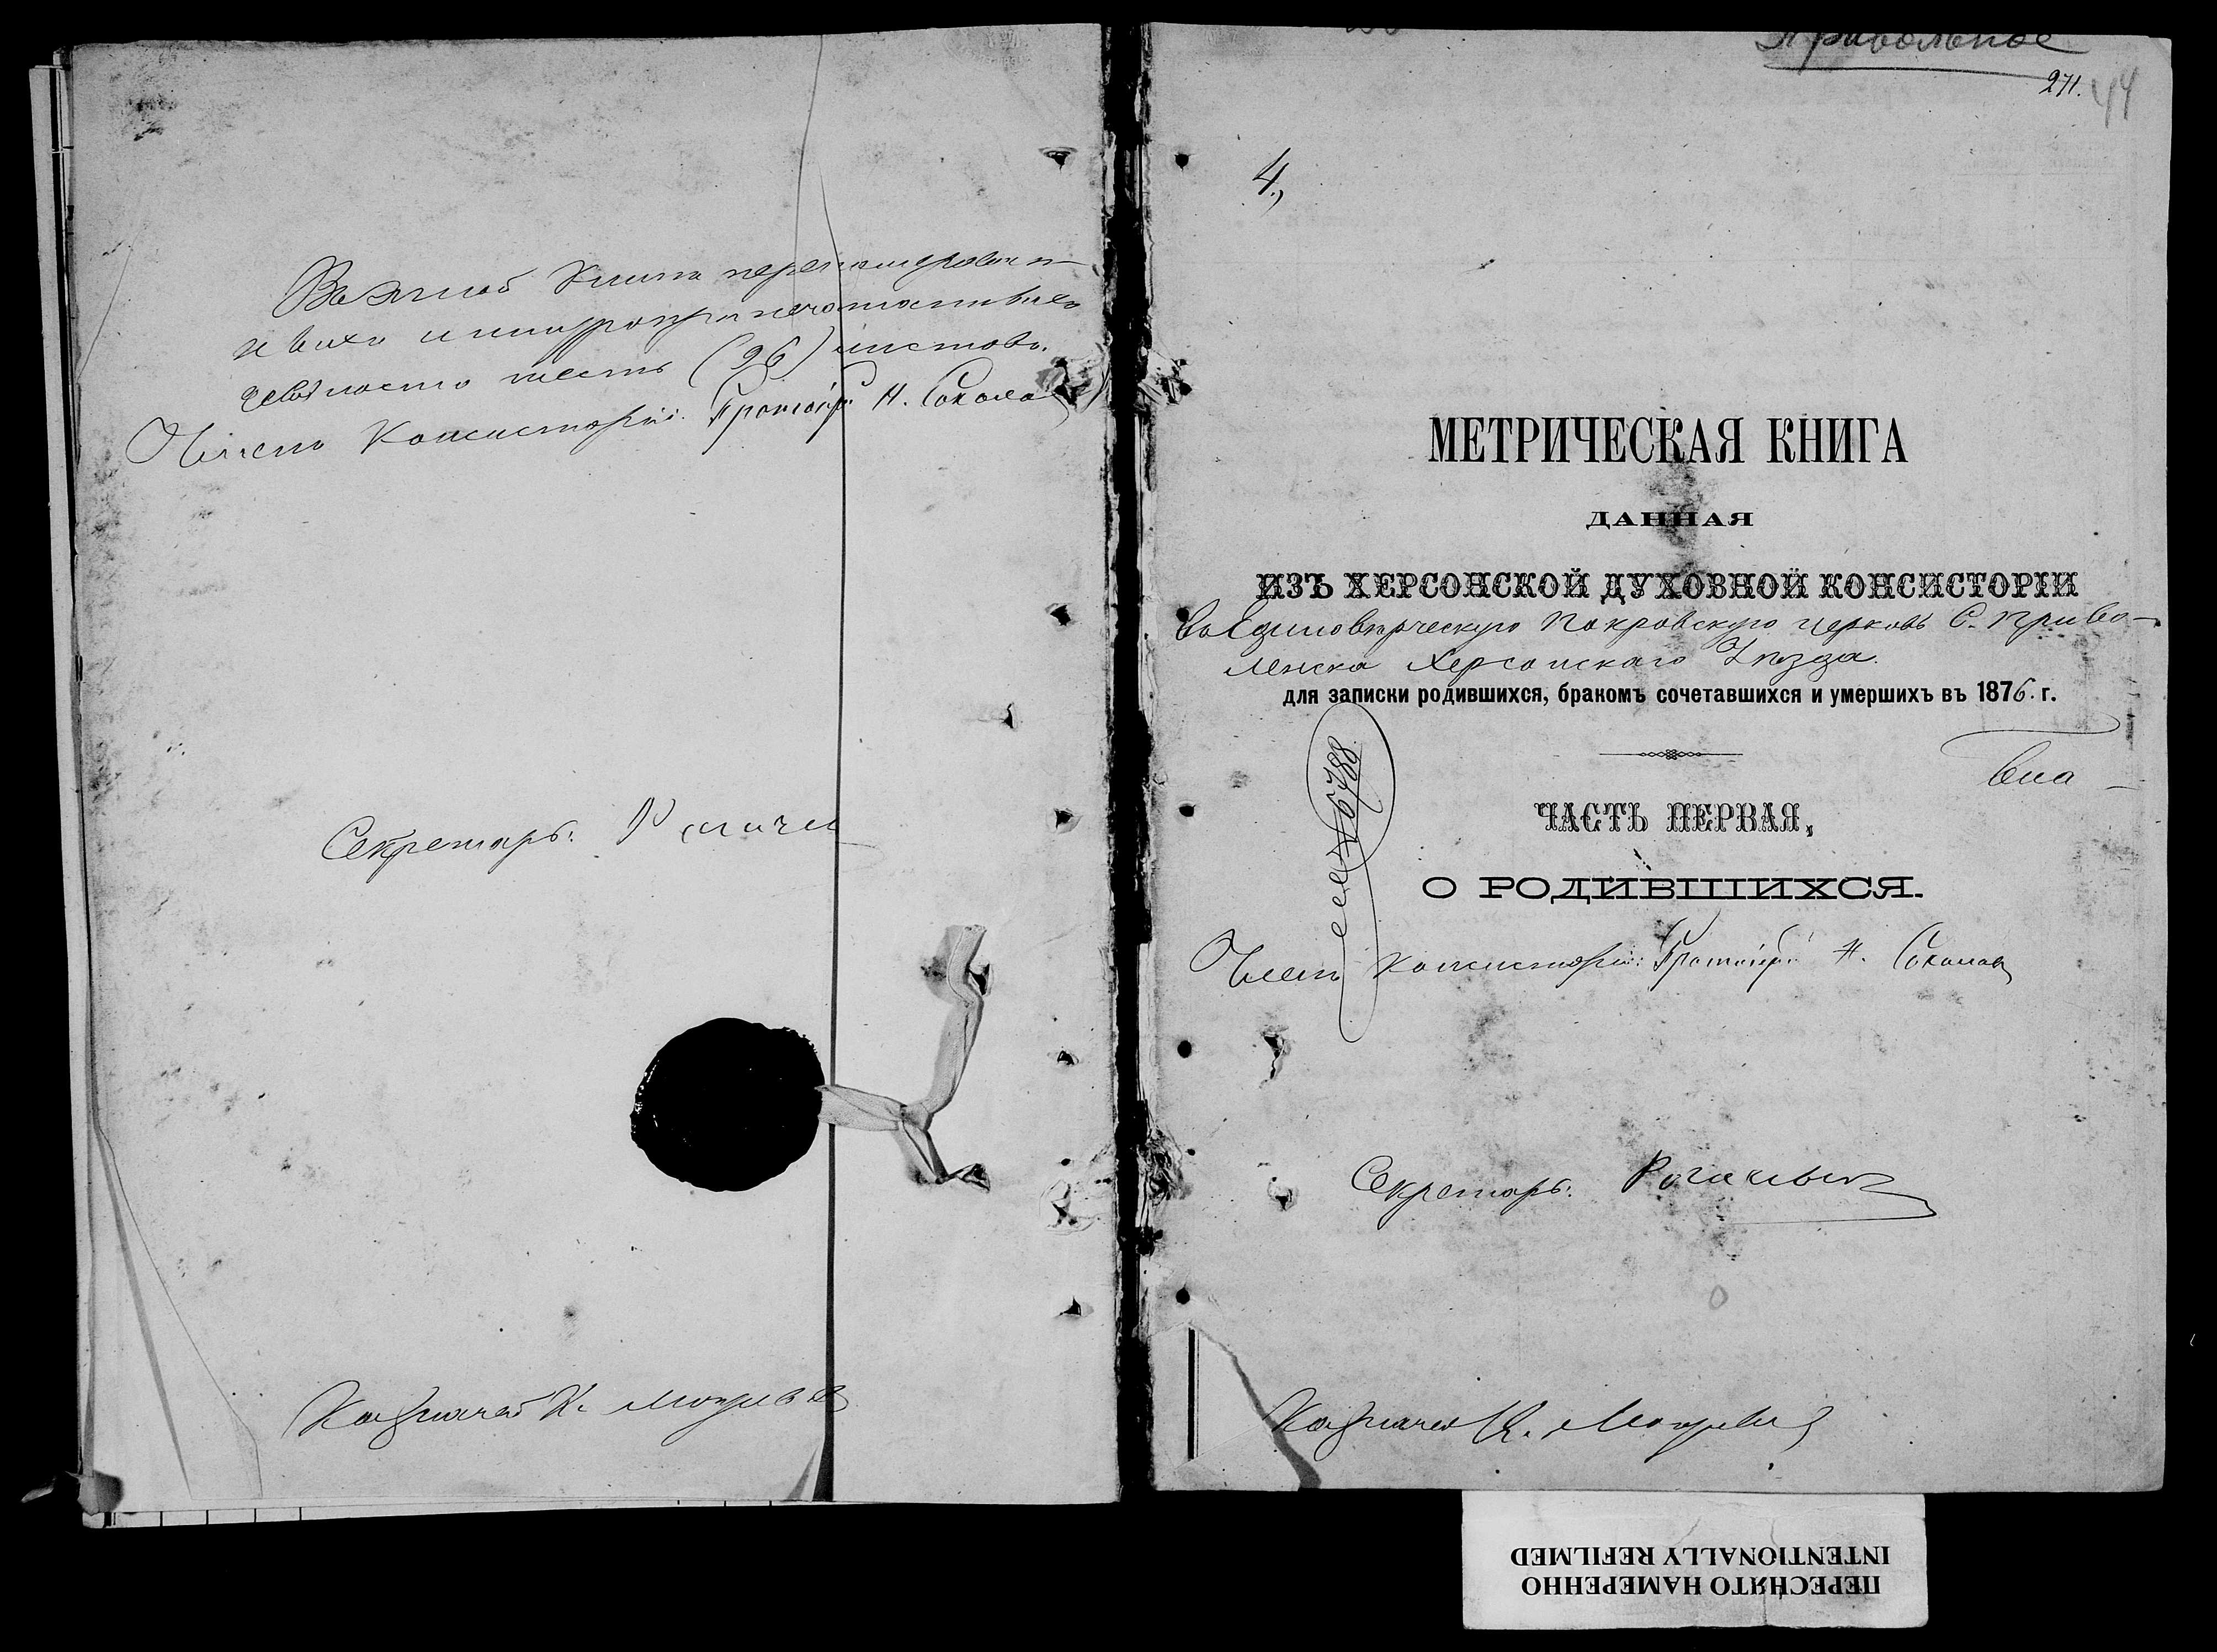 Въ этой Книгѣ перенумерованн
и шнуроприпечатанныхъ
девяносто шесть (96) листовъ.
Членъ Консисторіи: Протоіер. Н. Соколов
Секретарь:
Казначей К.
Привольное
271. 44
4.,
МЕТРИЧЕСКАЯ КНИГА
ДАННАЯ
ИЗЪ ХЕРСОНСКОЙ ДУХОВНОЙ КОНСИСТОРІИ
въ Единовѣрческую Покровскую церковь С. Приво-
ленска Херсонскаго Уѣзда.
для записки родившихся, бракомъ сочетавшихся и умершихъ въ 1876. г.
6788
ЧАСТЬ ПЕРВАЯ,
О РОДИВШИХСЯ.
Членъ Консисторіи: Протоіер. Н. Соколовъ
Секретарь: Рогачевъ
Казначей К.
ПЕРЕСНЯТО НАМЕРЕННО
INTENTIONALLY REFILMED